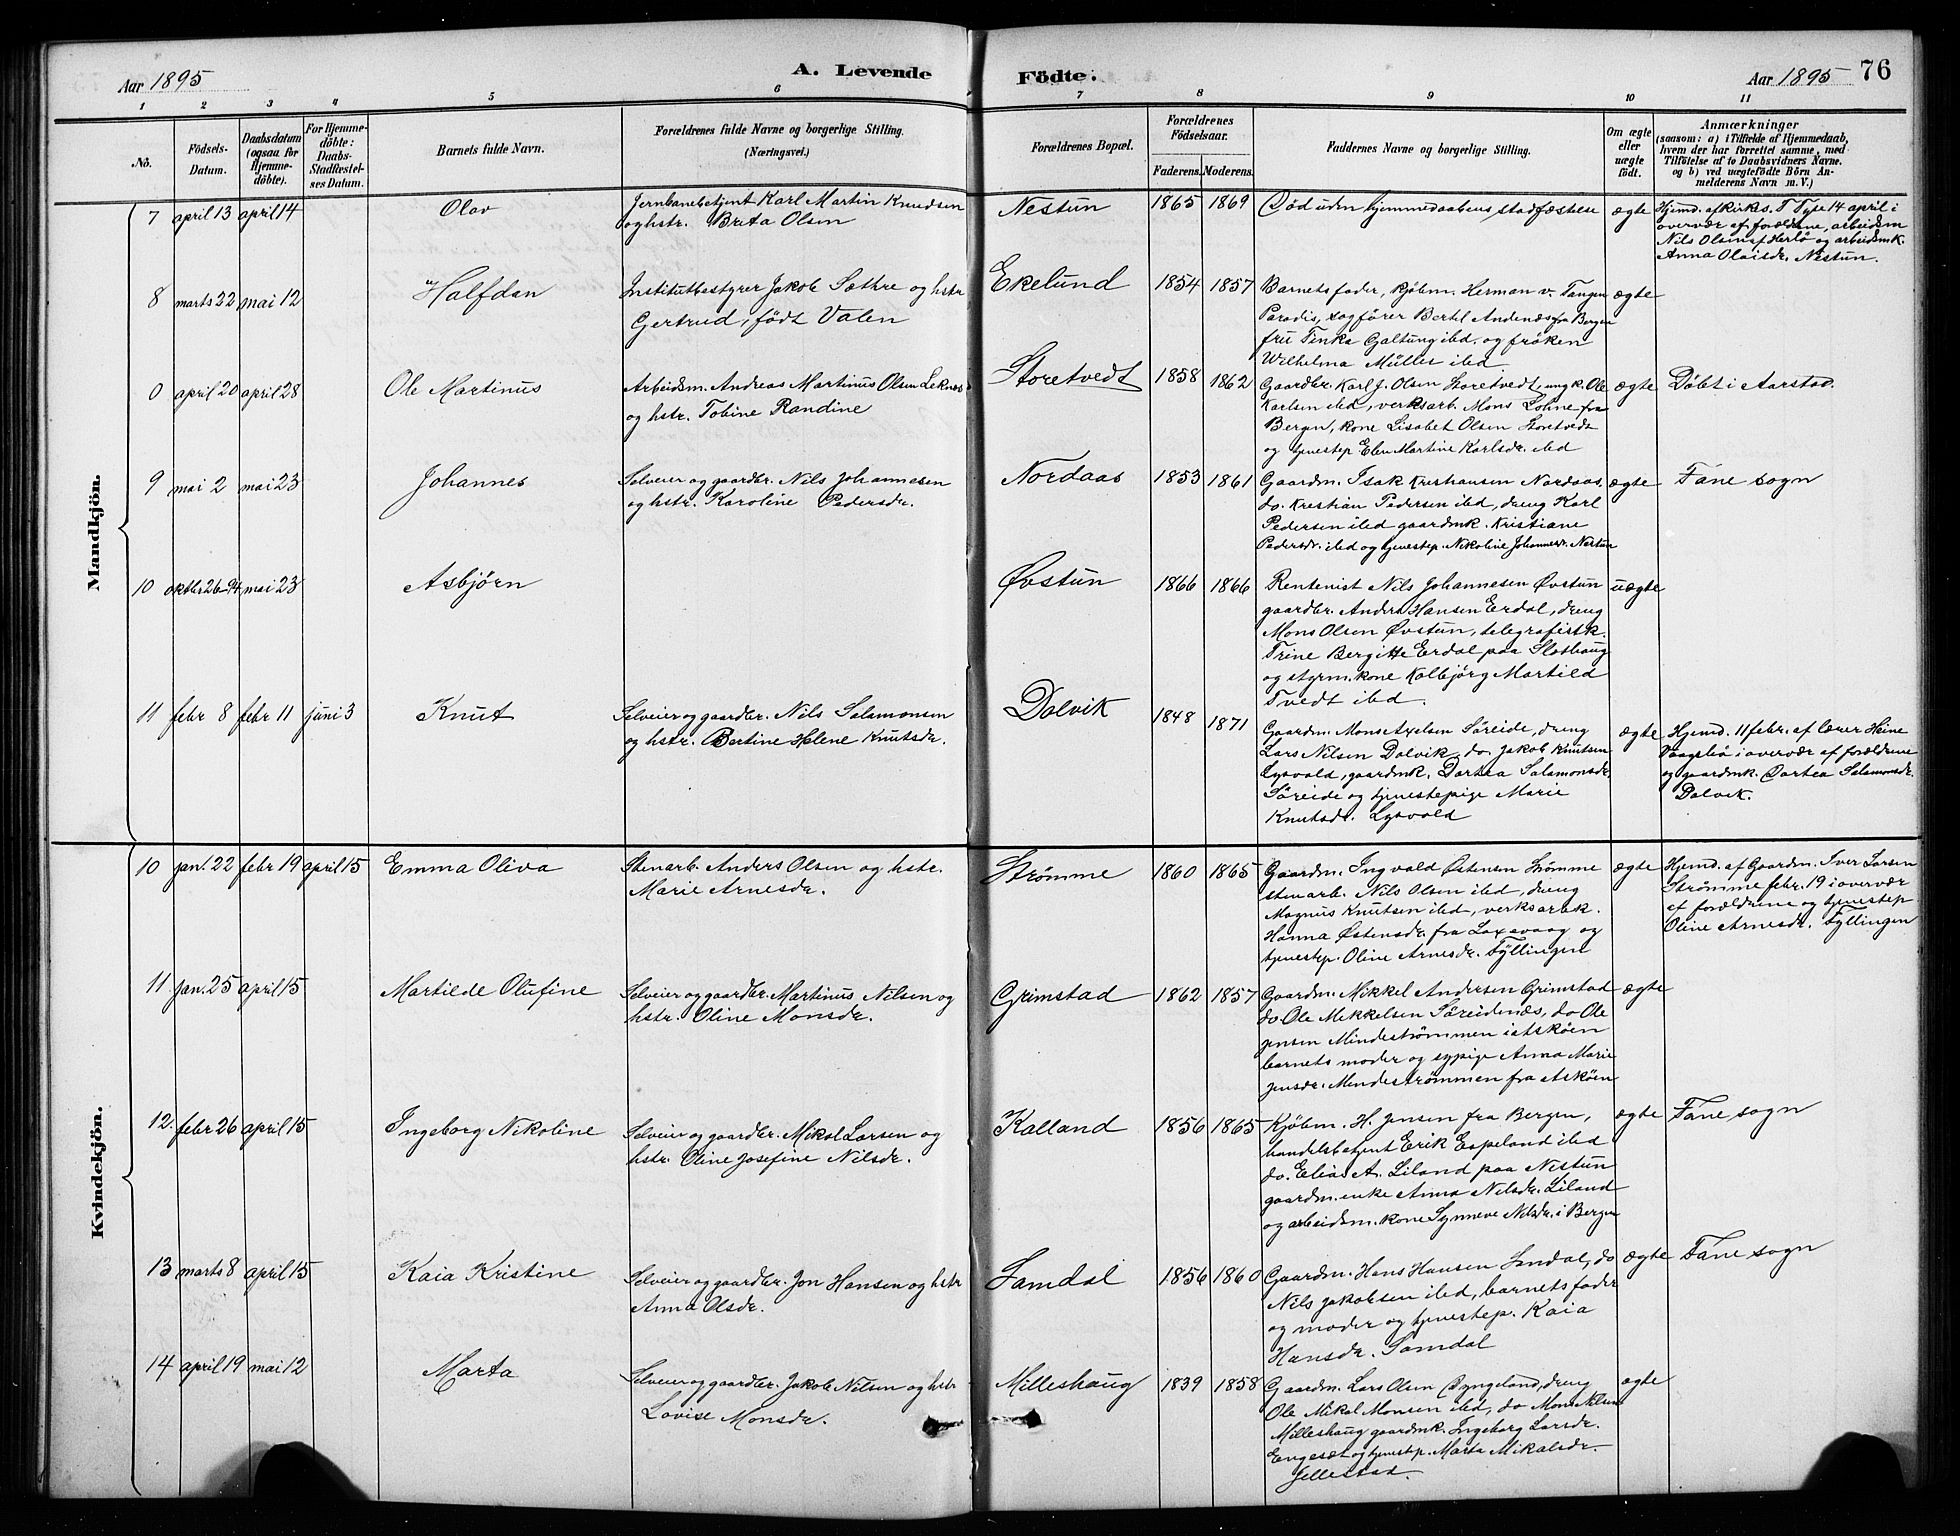 Aar 1895
A. Levende Födte.
Aar 1895 76
1 2 3 4 5 6 7 8 9 10 11
No.
Födsels-Datum.
Daabsdatum (ogsaa for Hjemme-döbte).
For Hjemme-döbte: Daabs-Stadfæstel-ses Datum.
Barnets fulde Navn.
Forældrenes fulde Navne og borgerlige Stilling.
(Næringsvei.)
Forældrenes Bopæl.
Forældrenes Födselsaar.
Faderens. Moderens.
Faddernes Navne og borgerlige Stilling.
Om ægte eller uægte födt.
Anmærkninger
(saasom: a) i Tilfælde af Hjemmedaab,
hvem der har forrettet samme, med
Tilföielse af to Daabsvidners Navne.
og b) ved uægtefödte Börn An-
melderens Navn m. V.)
Mandkjön.
7 april 13 april 14 Olav
Jernbanebetjent Karl Martin Knudsen
og hstr. Brita Olsen
Nestun 1865 1869
Död uden hjemmedaabens stadfæstelse
ægte
Hjemd. af kirkes. T. Tyse 14 april i
overvær af forældrene, arbeidsm
Nils Olsen f Herlö og arbeidsmk.
Anna Olaisdr. Nestun.
8 marts 22 mai 12 Halfdan
Institutbestyrer Jakob Sæthre og hstr
Gertrud, födt Valen
Ekelund 1854 1857
Barnets fader, kjöbm. Herman v. Tangen
Paradis, sagförer Bertel Andenæs fra Bergen
fru Tinka Galtung ibd. og fröken
Wilhelma Müller ibd
ægte
0 april 20 april 28 Ole Martinus
Arbeidsm. Andreas Martinus Olsen Leknes
og hstr. Tobine Randine
Storetvedt 1858 1862
Gaardbr. Karl J. Olsen Storetvedt, ungk. Ole
Karlsen ibd, verksarb. Mons Lohne fra
Bergen, kone Lisabet Olsen Storetvedt
og tjenestep. Elen Martine Karlsdr. ibd
ægte
Döbt i Aarstad.
9 mai 2 mai 23 Johannes
Selveier og gaardbr. Nils Johannesen
og hstr. Karoline Pedersdr.
Nordaas 1853 1861
Gaardm. Isak Kristiansen Nordaas,
do. Krestian Pedersen ibd, dreng Karl
Pedersen ibd gaardmk. Kristiane
Pedersdr. ibd og tjenestep. Nikoline Johannesdr. Nestun
ægte
Fane sogn
10 oktbr 26-94 mai 23 Asbjörn
Øvstun 1866 1866
Rentenist Nils Johannesen Øvstun
gaardbr. Anders Hansen Erdal, dreng
Mons Olsen Øvstun, telegrafistk.
Trine Bergitte Erdal paa Slethaug
og styrm. kone Kalbjörg Martild
Tvedt ibd.
uægte
11 febr 8 febr 11 juni 3 Knut
Selveier og gaardbr. Nils Salamonsen
og hstr. Bertine Helene Knutsdr.
Dolvik 1848 1871
Gaardm. Mons Axelsen Söreide, dreng
Lars Nilsen Dolvik, do. Jakob Knutsen
Lysvold, gaardmk. Dortea Salamonsdr.
Söreide og tjenestepige Marie
Knutsdr. Lysvold
ægte
Hjemd. 11 febr. af lærer Heine
Vaagsbö i overvær af forældrene
og gaardmk. Dortea Salamonsdr.
Dolvik.
Kvindekjön.
10 jan. 22 febr 19 april 15 Emma Oliva
Stenarb. Anders Olsen og hstr.
Marie Arnesdr.
Strømme 1860 1865
Gaardm. Ingvald Østensen Strömme
stenarb. Nils Olsen ibd, dreng
Magnus Knutsen ibd, verksarbk.
Hanna Østensdr. fra Laxevaag og
tjenestep. Oline Arnesdr. Fyllingen
ægte
Hjemd. af Gaardm. Iver Larsen
Strömme febr. 19 i overvær
af forældrene og tjenestep
Oline Arnesdr. Fyllingen
11 jan. 25 april 15 Martilde Olufine
Selveier og gaardbr. Martinus Nilsen og
hstr. Oline Monsdr.
Grimstad 1862 1857
Gaardm. Mikkel Andersen Grimstad
do Ole Mikkelsen Söreidenæs, do Ole
Jensen Mindeströmmen i Askøen
barnets moder og sypige Anna Marie
Jensdr. Mindeströmmen fra Askøen
ægte
12. febr 26 april 15 Ingeborg Nikoline
Selveier og gaardbr. Mikal Larsen og
hstr. Oline Josefine Nilsdr.
Kalland 1856 1865
Kjöbm. H. Jensen fra Bergen,
handelsbetjent Erik Espeland ibd
do. Elias A. Liland paa Nestun
gaardm. enke Anna Nilsdr. Liland
og arbeidsm. kone Synneve Nilsdr. i Bergen
ægte
Fane sogn
13 marts 8 april 15 Kaia Kristine
Selveier og gaardbr. Jon Hansen og hstr
Anna Olsdr.
Samdal 1856 1860
Gaardm. Hans Hansen Samdal, do
Nils Jakobsen ibd, barnets fader
og moder og tjenestep. Kaia
Hansdr. Samdal
ægte
Fane sogn
14 april 19 mai 12 Marta
Selveier og gaardbr. Jakob Nilsen og hstr
Lovise Monsdr.
Milleshaug 1839 1858
Gaardm. Lars Olsen Dyngeland, dreng
Ole Mikal Monsen ibd, do Mons Nilsen
Milleshaug gaardmk. Ingeborg Larsdr.
Engeset og tjenestep. Marta Mikalsdr.
Jellestad.
ægte